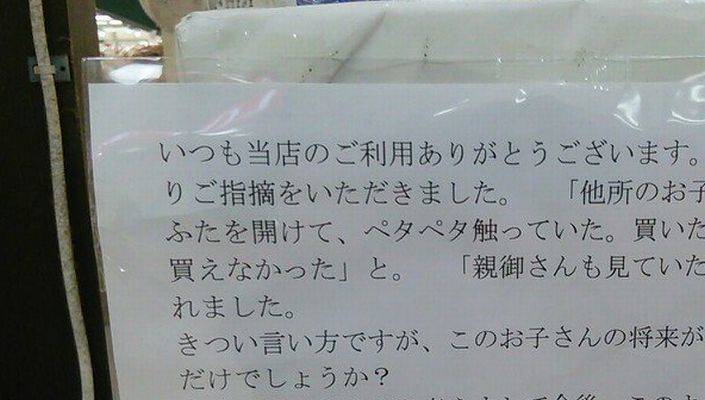 いつも当店のご利用ありがとうございます。
りご指摘をいただきました。 「他所のお子
ふたを開けて、ペタペタ触っていた。買いた
買えなかった」と。 「親御さんも見ていた
れました。
きつい言い方ですが、このお子さんの将来が
だけでしょうか？